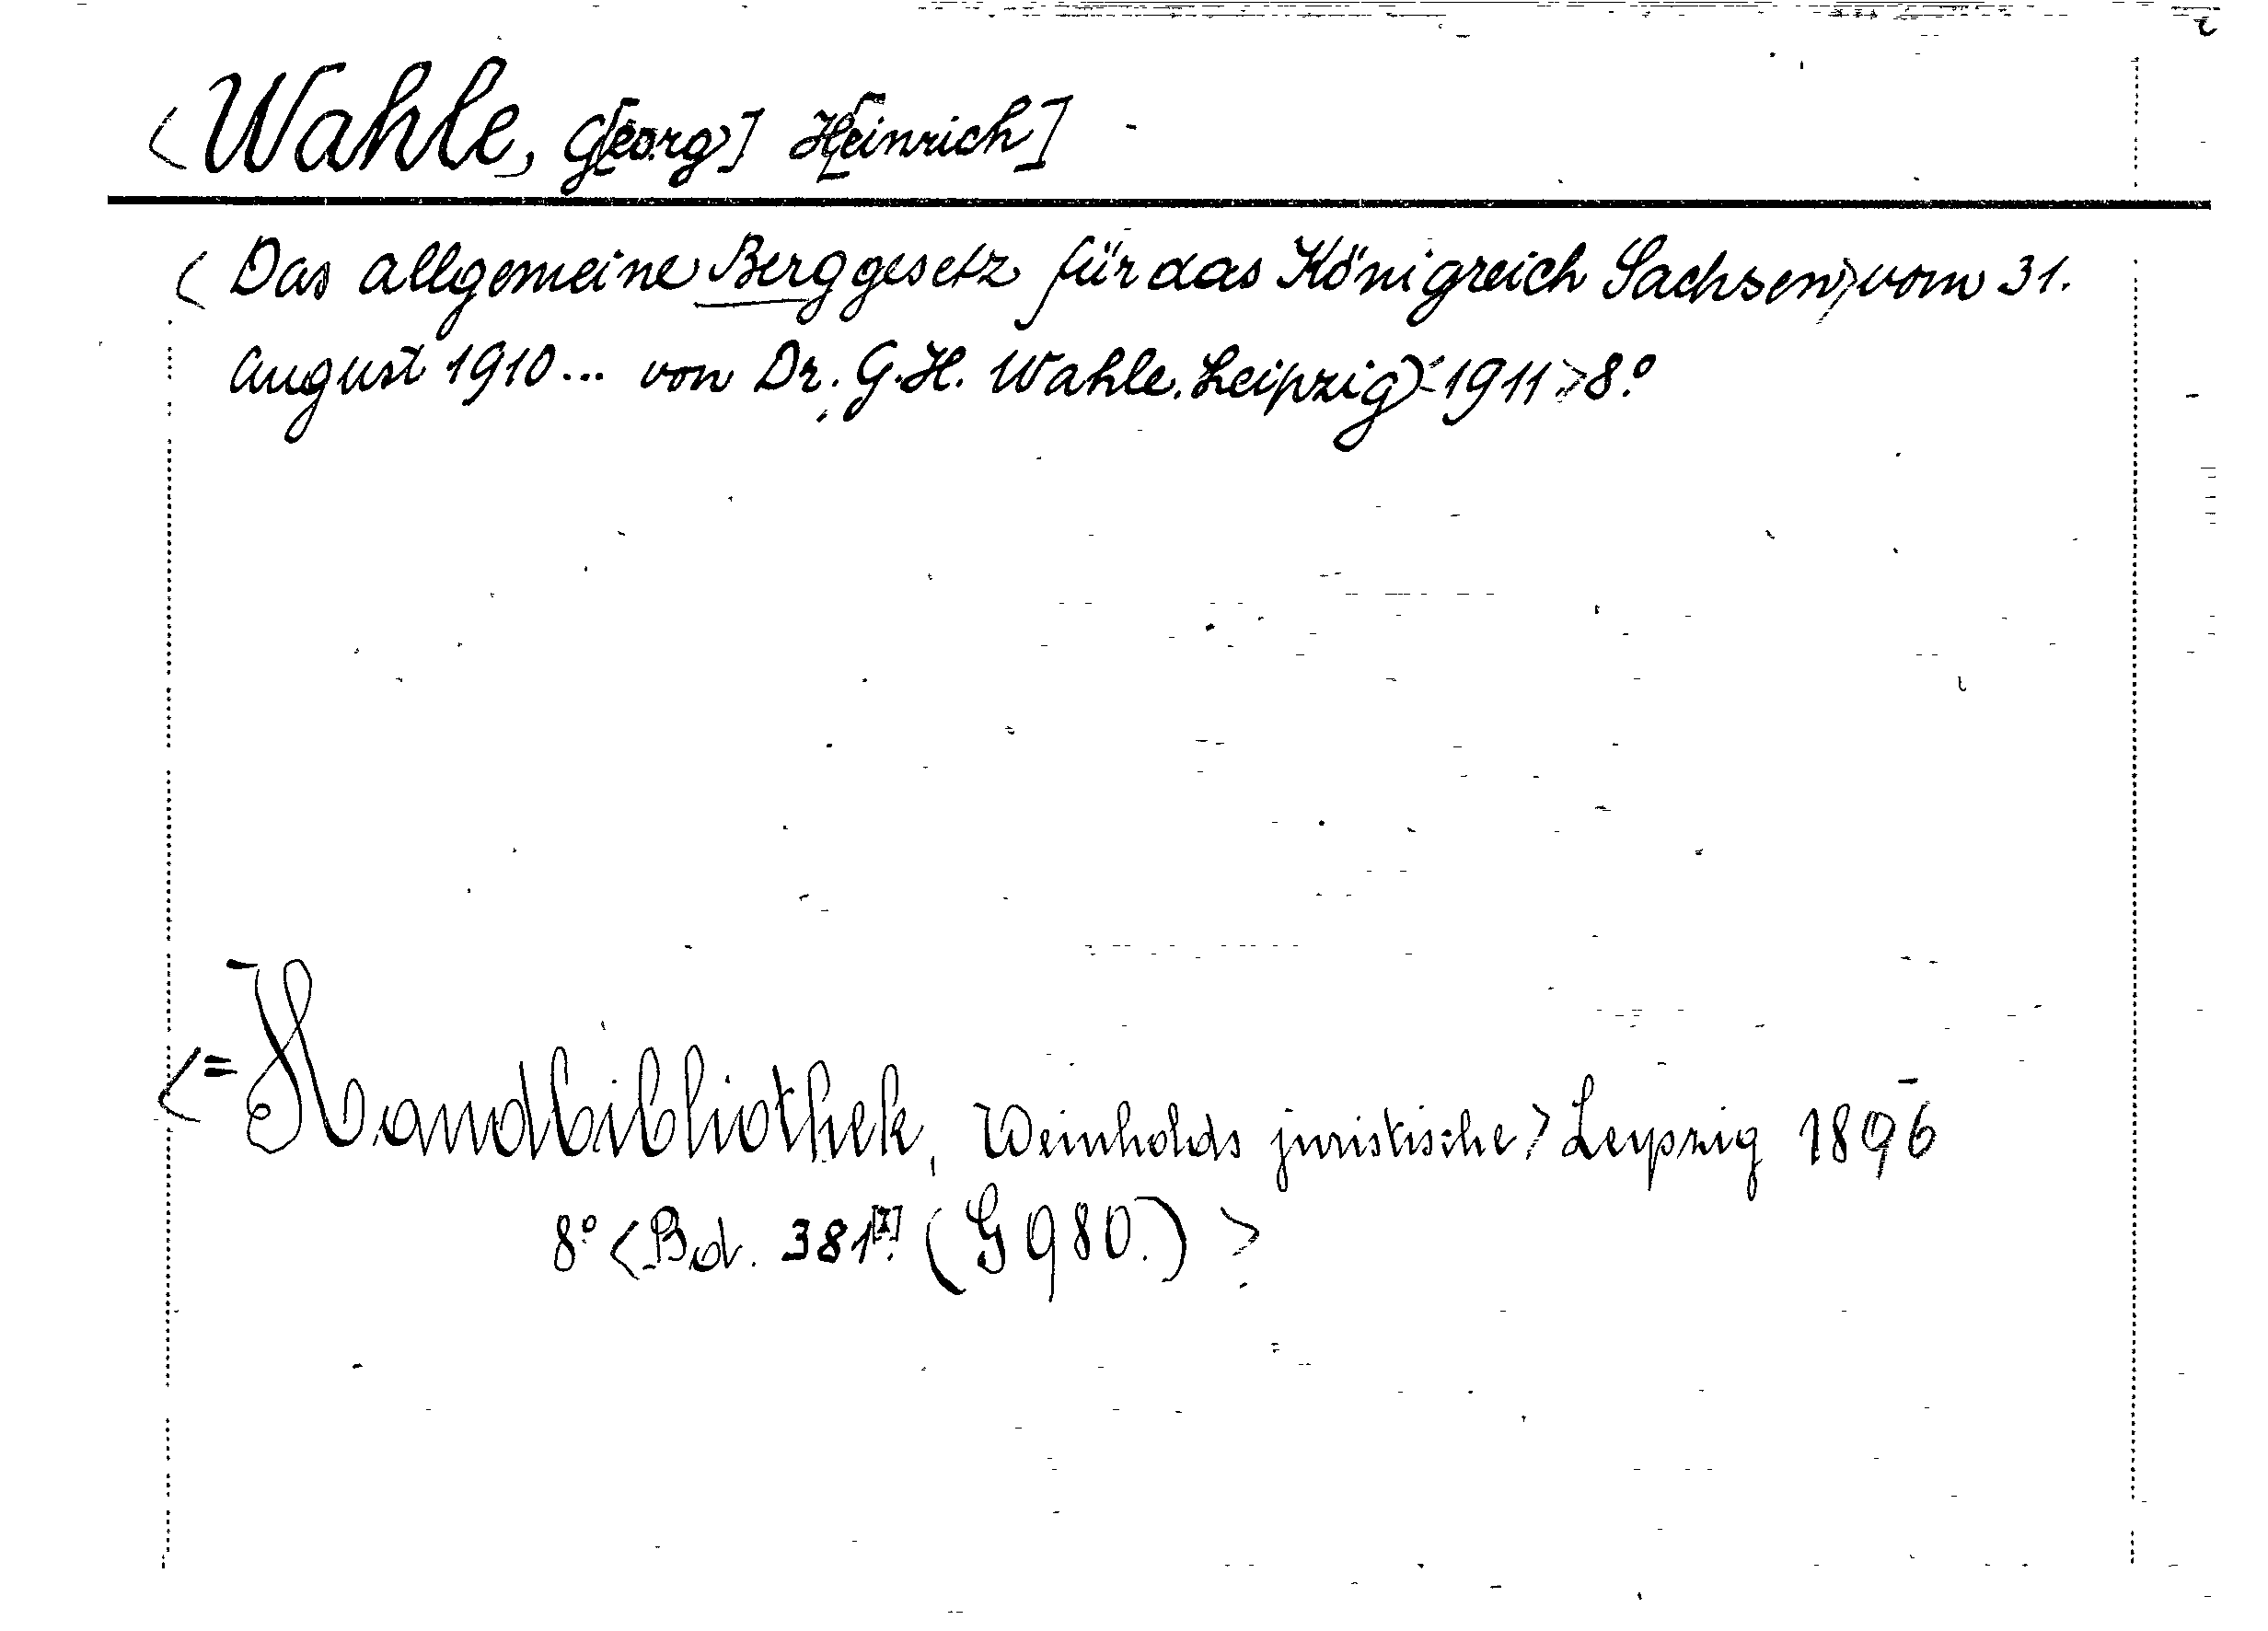 <Wahle, G[eorg] H[einrich]
<Das allgemeine Berggesetz für das Königreich Sachsen> vom 31.
August 1910... von Dr. G. H. Wahle. Leipzig 1911> 8°
<= Handbibliothek, Weinholds juristische> Leipzig 1896
8° <Bd. 381[I] (G 980.)>